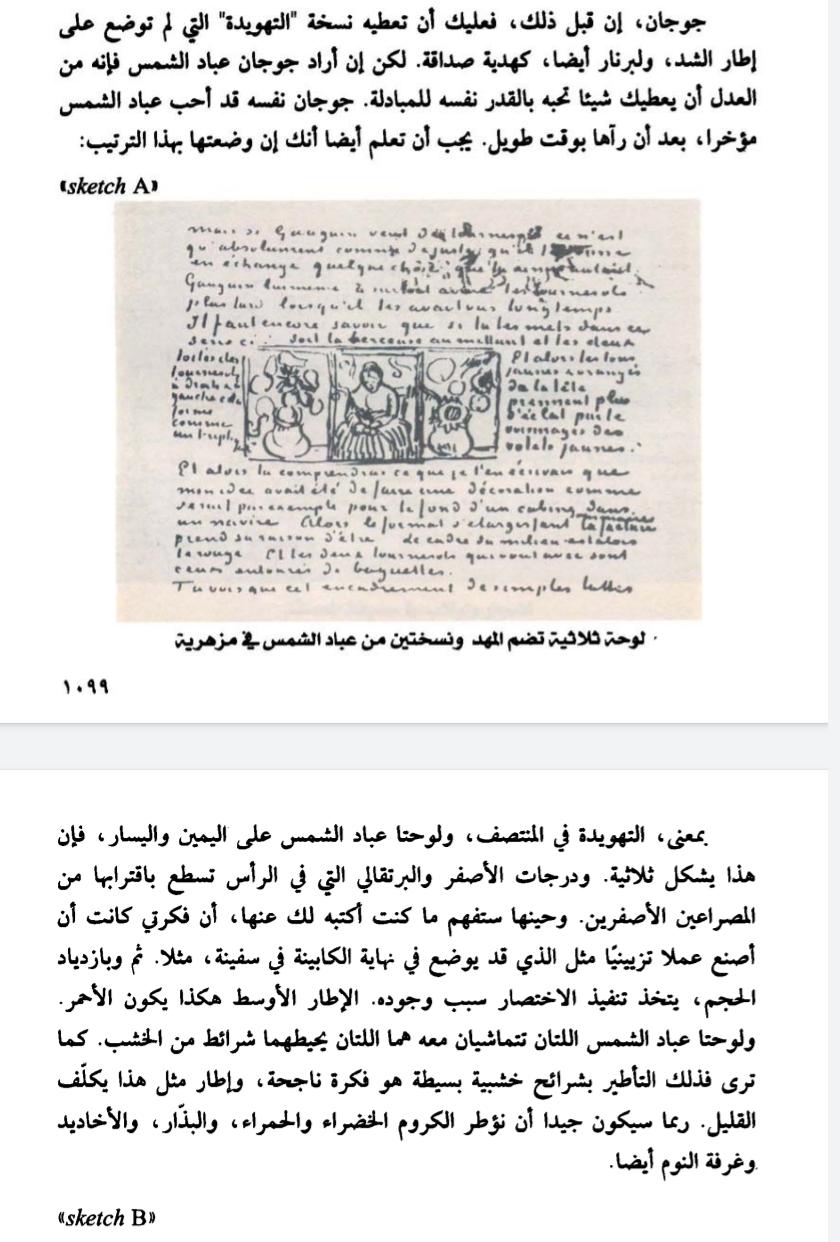 جوجان، إن قبل ذلك، فعليك أن تعطيه نسخة "التهويدة" التي لم توضع على
إطار الشد، ولبرنار أيضا، كهدية صداقة. لكن إن أراد جوجان عباد الشمس فإنه من
العدل أن يعطيك شيئا تحبه بالقدر نفسه للمبادلة. جوجان نفسه قد أحب عباد الشمس
مؤخرا، بعد أن رآها بوقت طويل. يجب أن تعلم أيضا أنك إن وضعتها بهذا الترتيب:
«sketch A»
mais si Gauguin veut des tournesols ce n'est
qu'absolument comme de juste qu'il te donne
en échange quelque chose que tu aimes autant.
Gauguin lui-même a surtout aimé les tournesols
plus tard lorsqu'il les avait vus longtemps
Il faut encore savoir que si tu les mets dans ce
sens ci: soit la berceuse au milieu et les deux
toiles des
tournesols
à droite et à
gauche cela
forme
comme
un triptyque
Et alors les tons
jaunes & orangés
de la tête
prennent plus
d'éclat par le
voisinages des
volets jaunes.
Et alors tu comprendras ce que je t'en écrivais que
mon idée avait été de faire une décoration comme
serait par exemple pour le fond d'une cabine dans
un navire Alors le format s'élargissant la facture
prend sa raison d'être le cadre du milieu est alors
le rouge Et les deux tournesols qui vont avec sont
ceux entourés de baguettes.
Tu vois que cet encadrement de simples lattes
لوحة ثلاثية تضم المهد ونسختين من عباد الشمس في مزهرية
١٠٩٩
بمعنى، التهويدة في المنتصف، ولوحتا عباد الشمس على اليمين واليسار، فإن
هذا يشكل ثلاثية. ودرجات الأصفر والبرتقالي التي في الرأس تسطع باقترابها من
المصراعين الأصفرين. وحينها ستفهم ما كنت أكتبه لك عنها، أن فكرتي كانت أن
أصنع عملا تزيينيًا مثل الذي قد يوضع في نهاية الكابينة في سفينة، مثلا. ثم وبازدياد
الحجم، يتخذ تنفيذ الاختصار سبب وجوده. الإطار الأوسط هكذا يكون الأحمر.
ولوحتا عباد الشمس اللتان تتماشيان معه هما اللتان يحيطهما شرائط من الخشب. كما
ترى فذلك التأطير بشرائح خشبية بسيطة هو فكرة ناجحة، وإطار مثل هذا يكلّف
القليل. ربما سيكون جيدا أن نؤطر الكروم الخضراء والحمراء، والبذّار، والأخاديد
وغرفة النوم أيضا.
«sketch B»